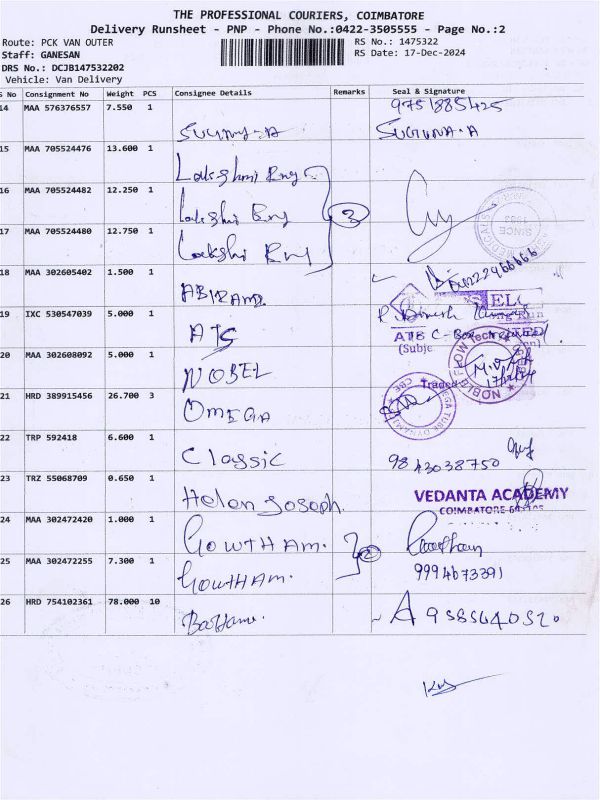 THE PROFESSIONAL COURIERS, COIMBATORE
Delivery Runsheet - PNP - Phone No.:0422-3505555 - Page No.:2
Route: PCK VAN OUTER
RS No.: 1475322
Staff: GANESAN
RS Date: 17-Dec-2024
DRS No.: DCJB147532202
Vehicle: Van Delivery
S No Consignment No Weight PCS Consignee Details Remarks Seal & Signature
14 MAA 576376557 7.550 1 9751885425
SUGUNA-A
15 MAA 705524476 13.600 1
Lakshmi Eng
16 MAA 705524482 12.250 1
Lakshi Eng 3
SINCE 1983
17 MAA 705524480 12.750 1
Lakshi Eng
18 MAA 302605402 1.500 1
ABIRAMI
19 IXC 530547039 5.000 1
ATS
ATB C-Box
(Subje
20 MAA 302608092 5.000 1
NOBEL
NOBLE FLOW Tech
21 HRD 389915456 26.700 3
OMEGA
22 TRP 592418 6.600 1
Classic 9843038750
23 TRZ 55068709 0.650 1
Helen Joseph.
VEDANTA ACADEMY
COIMBATORE
24 MAA 302472420 1.000 1
GOWTHAM. 2 Gowtham
25 MAA 302472255 7.300 1
GOWTHAM. 9994673391
26 HRD 754102361 78.000 10